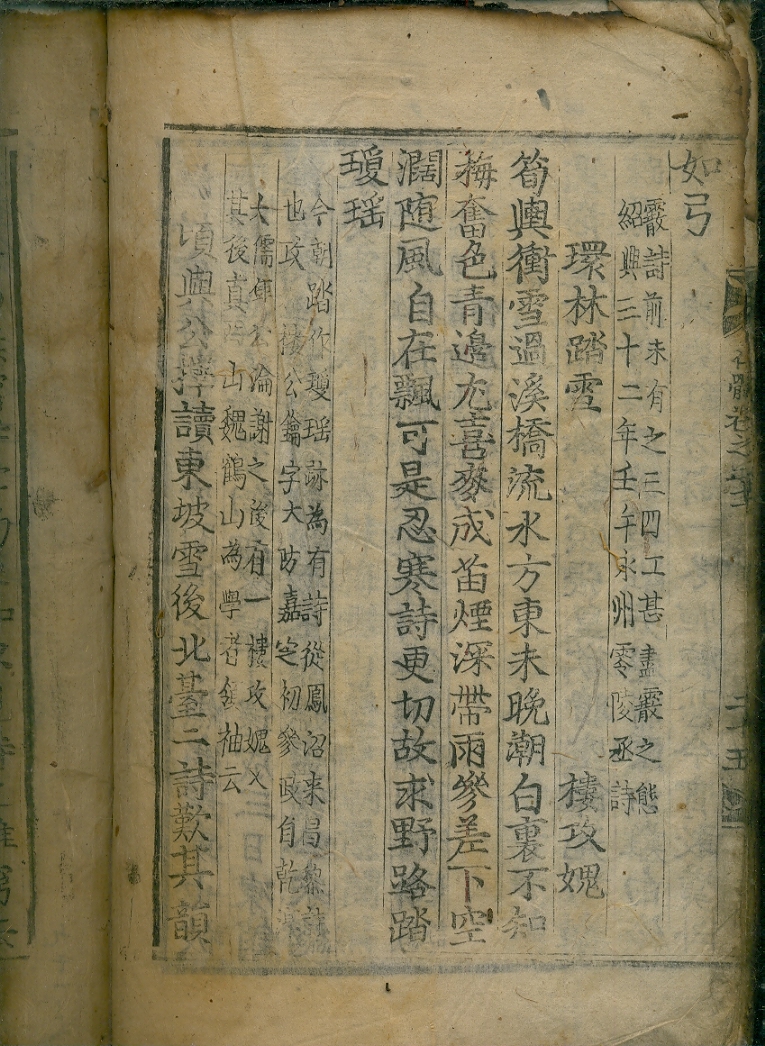 如弓
霰詩前未有之三四工甚盡霰之態
紹興三十二年壬午永州零陵丞詩
環林踏雪 樓攻媿
筍輿衝雪過溪橋流水方東未晚潮白裏不知
梅奮色青邊尤喜麥成苗煙深帶雨參差下空
濶随風自在飄可是忍寒詩更切故求野路踏
瓊瑶
今朝踏作瓊瑶跡為有詩從鳳沼来昌黎詩
也攻媿公鑰字大防嘉定初參政自乾
大儒 公淪謝之後有一樓攻媿又
其後真西山魏鶴山為學者領袖云
頃與公擇讀東坡雪後北臺二詩歎其韻
骨卷之
二十五